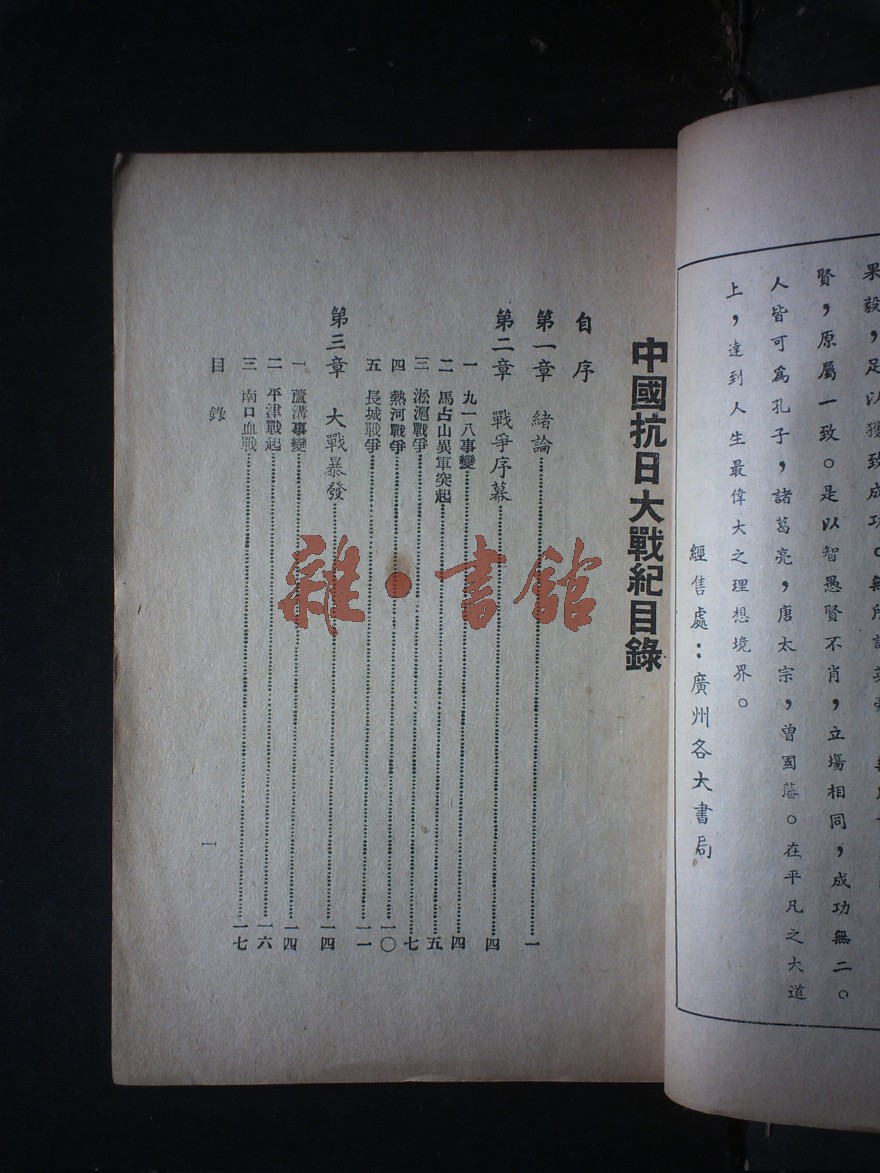 果毅，足以獲致成功。無所謂英豪
賢，原屬一致。是以智愚賢不肖，立塲相同，成功無二。
人皆可爲孔子，諸葛亮，唐太宗，曾國藩。在平凡之大道
上，達到人生最偉大之理想境界。
經售處：廣州各大書局
中國抗日大戰紀目錄
自序
第一章 緒論 一
第二章 戰爭序幕 四
一 九一八事變 四
二 馬占山異軍突起 五
三 淞滬戰爭 七
四 熱河戰爭 一〇
五 長城戰爭 一一
第三章 大戰暴發 一四
一 蘆溝事變 一四
二 平津戰起 一六
三 南口血戰 一七
目錄 一
雜·書館